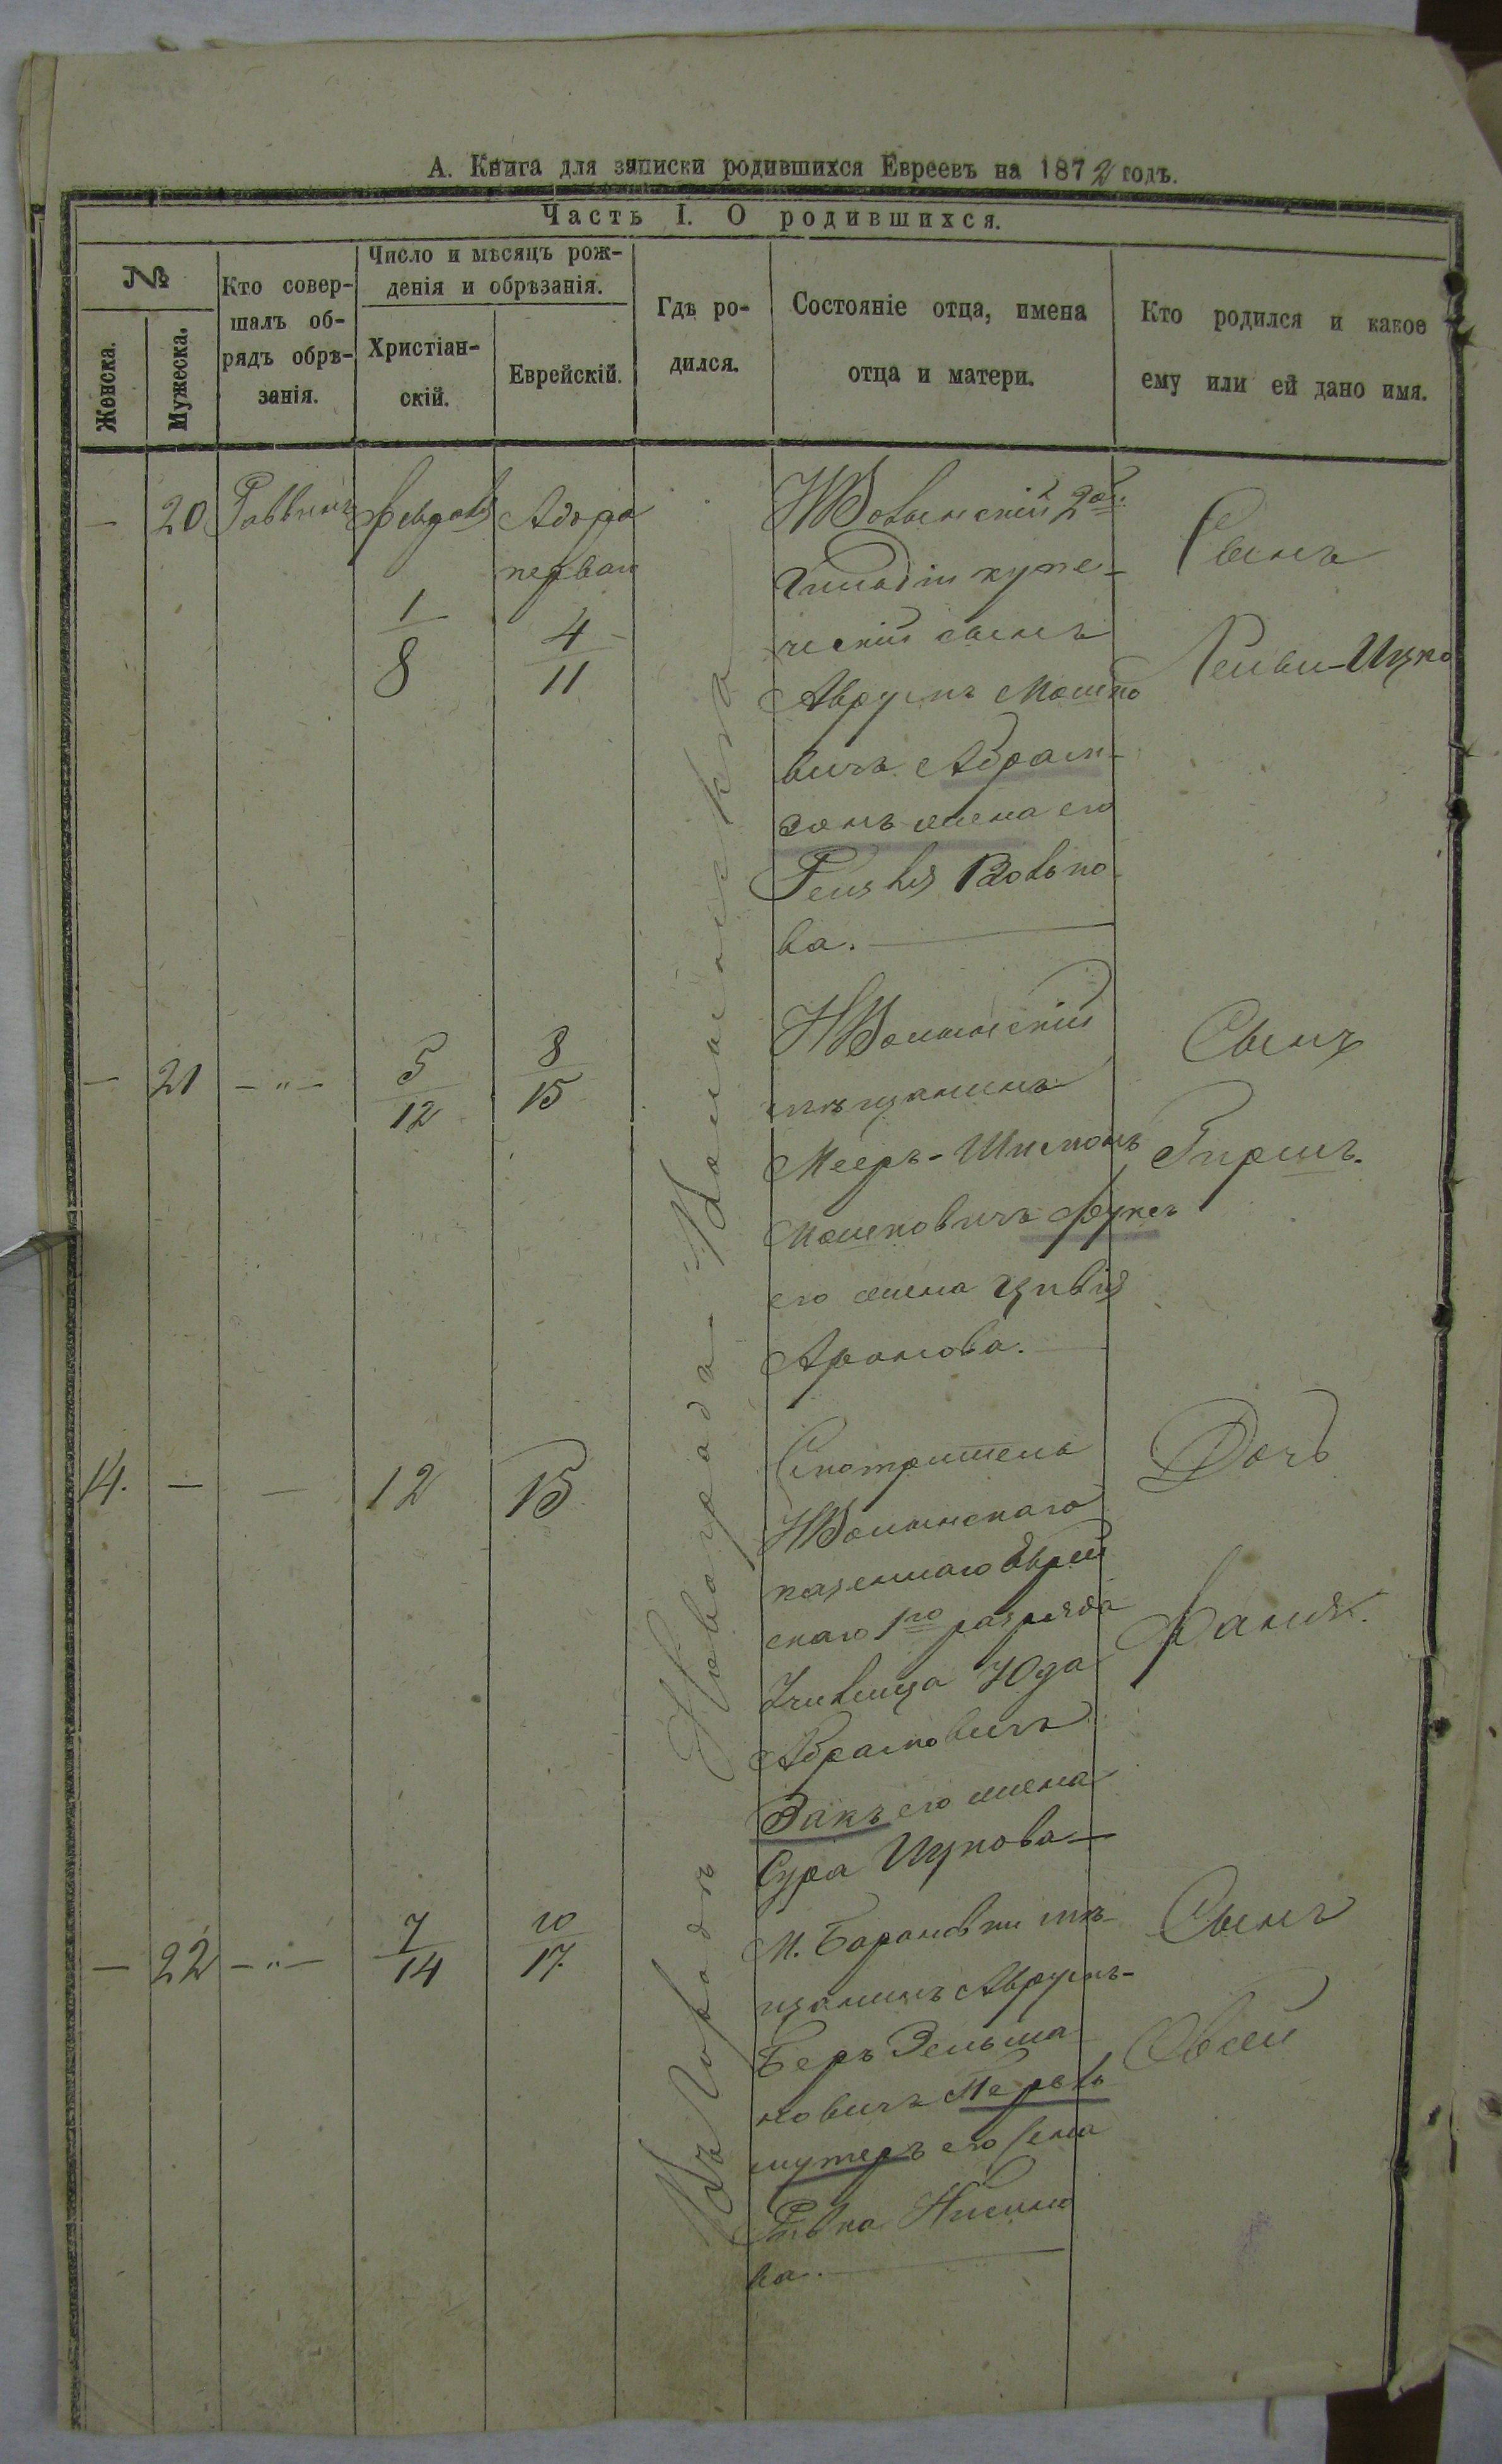 А. Книга для записки родившихся Евреевъ на 1872 годъ.
Часть I. О родившихся.
№
Женска.
Мужеска.
Кто совер-
шалъ об-
рядъ обрѣ-
занія.
Число и мѣсяцъ рож-
денія и обрѣзанія.
Христіан-
скій.
Еврейскій.
Гдѣ ро-
дился.
Состояніе отца, имена
отца и матери.
Кто родился и какое
ему или ей дано имя.
— 20 Раввинъ
Февраля
1
8
Адара
перваго
4
11
Въ Городѣ Новоградъ-Волынскѣ
НВолынскій 2ой
Гильдіи купе-
ческій сынъ
Аврумъ Мошко
вичъ Абрам-
зонъ жена его
Рейзля Волько-
ва.
Сынъ
Лейви-Ицко
— 21 —"—
5
12
8
15
НВолынскій
мѣщанинъ
Мееръ-Шимонъ
Мошковичъ Фуксъ
его жена Цивія
Аронова.
Сынъ
Гиршъ.
14. — — 12 15
Смотритель
НВолынскаго
казеннаго Еврей
скаго 1го разряда
Училища Юда
Абрамовичъ
Закъ его жена
Сура Ицкова —
Дочь
Фаня.
— 22 —"—
7
14
10
17.
М. Барановки мѣ-
щанинъ Аврумъ-
Беръ Зельма
новичъ Перель
мутеръ его жена
Ривка Нисино
ва.
Сынъ
Овсей